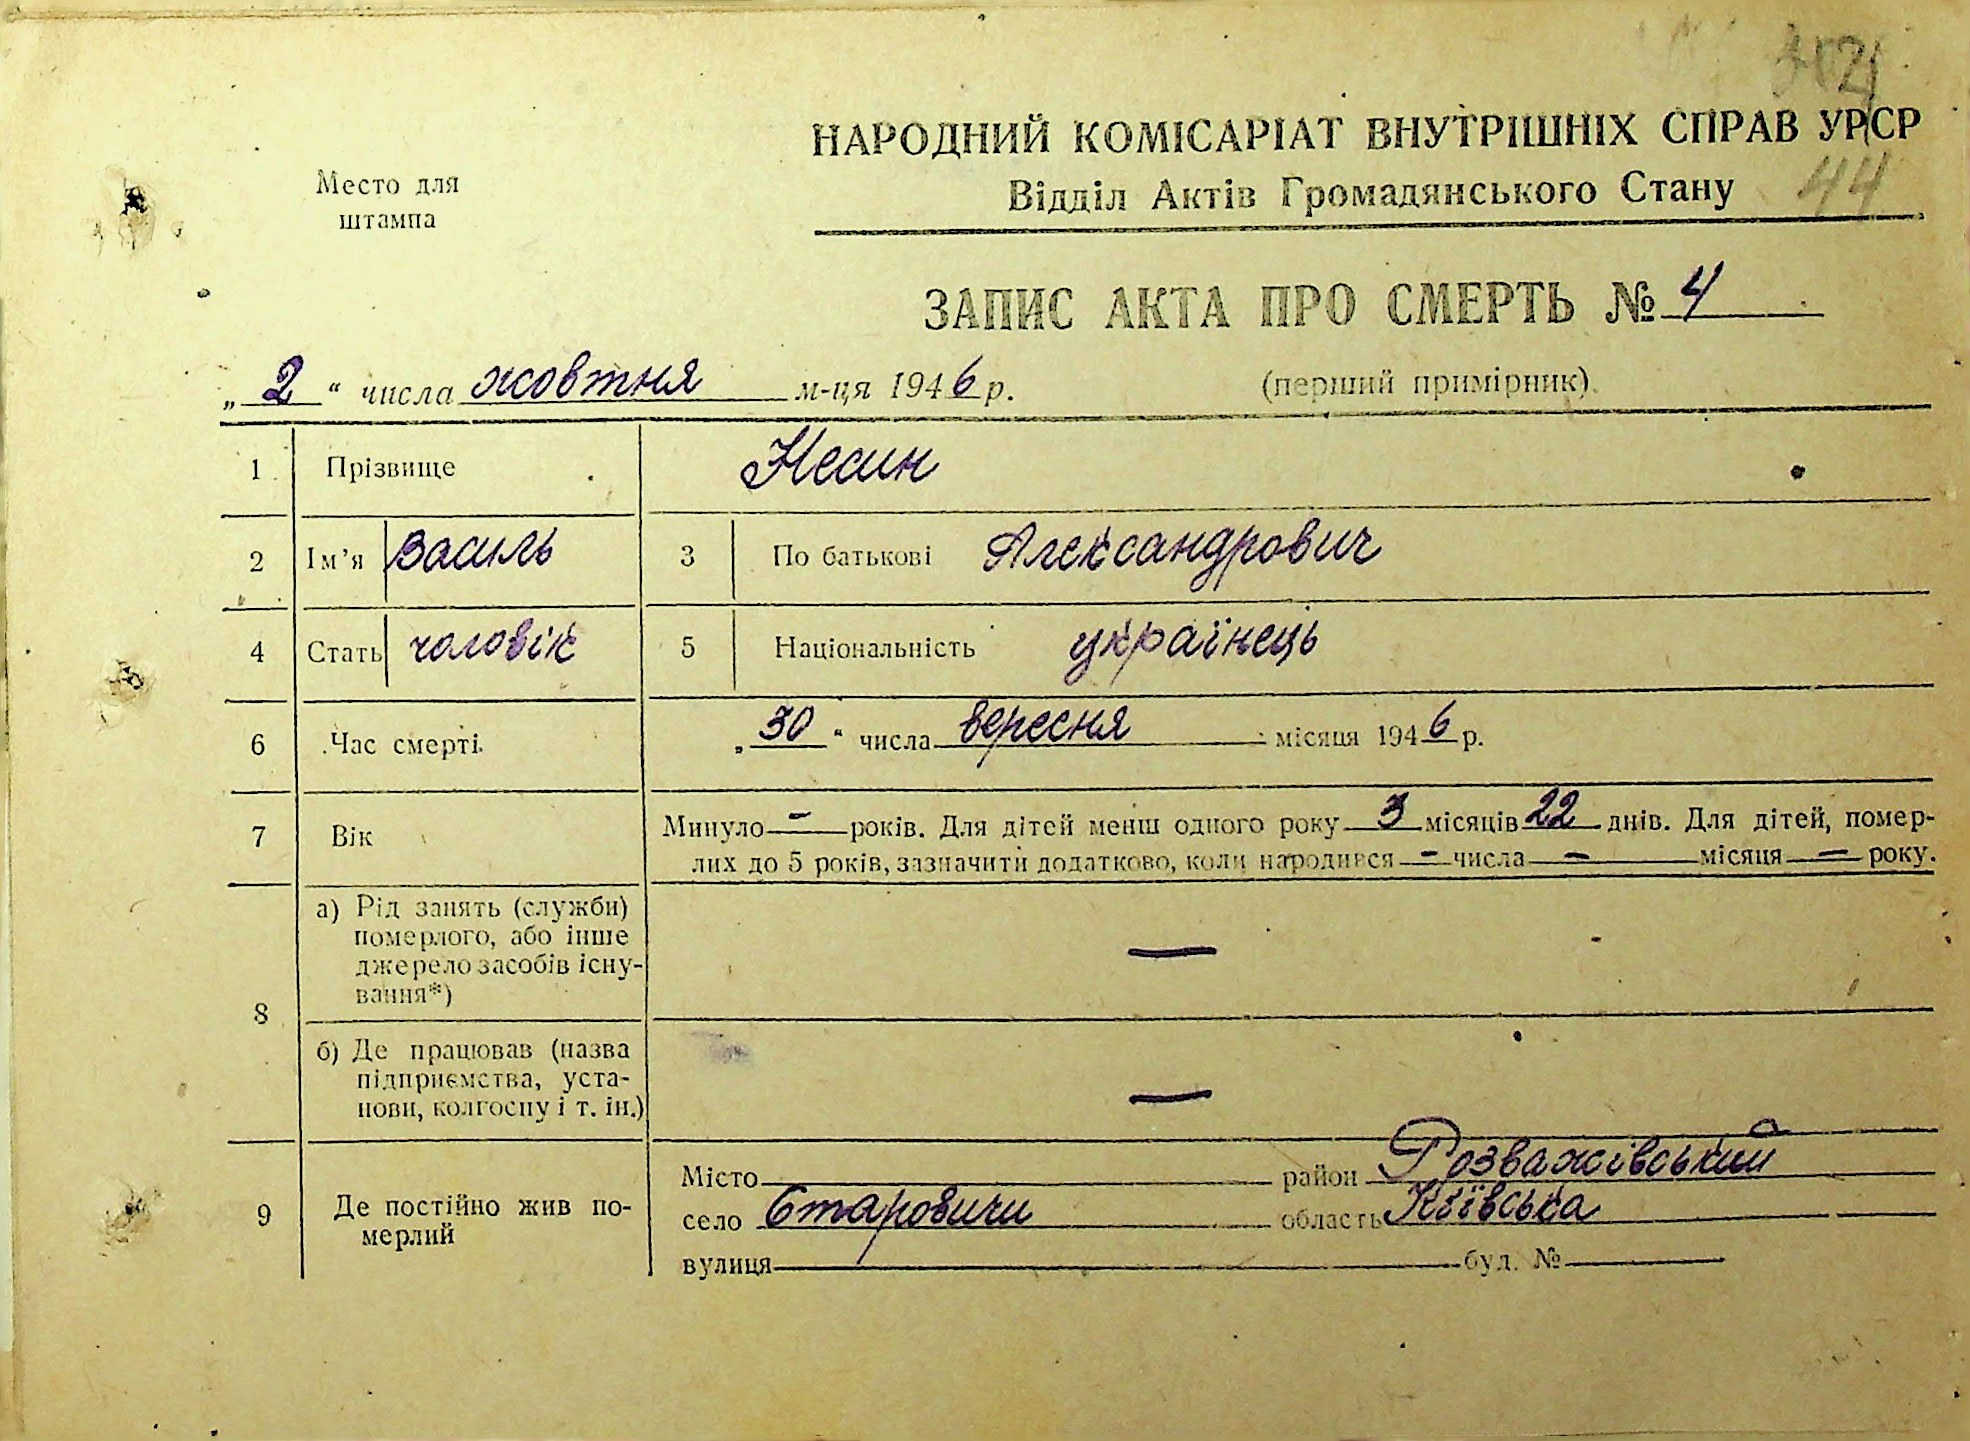 44
НАРОДНИЙ КОМІСАРІАТ ВНУТРІШНІХ СПРАВ УРСР
Место для
штампа
Відділ Актів Громадянського Стану
ЗАПИС АКТА ПРО СМЕРТЬ № 4
„ 2 “ числа жовтня м-ця 1946 р. (перший примірник).
1 Прізвище Несин
2 Ім'я Василь 3 По батькові Александрович
4 Стать чоловік 5 Національність українець
6 Час смерті „ 30 “ числа вересня місяця 1946 р.
7 Вік Минуло - років. Для дітей менш одного року 3 місяців 22 днів. Для дітей, помер-
лих до 5 років, зазначити додатково, коли народився - числа - місяця - року.
8 а) Рід занять (служби)
померлого, або інше
джерело засобів існу-
вання*) —
б) Де працював (назва
підприємства, уста-
нови, колгоспу і т. ін.) —
9 Де постійно жив по-
мерлий
Місто район Розважівський
село Старовичи область Київська
вулиця буд. №